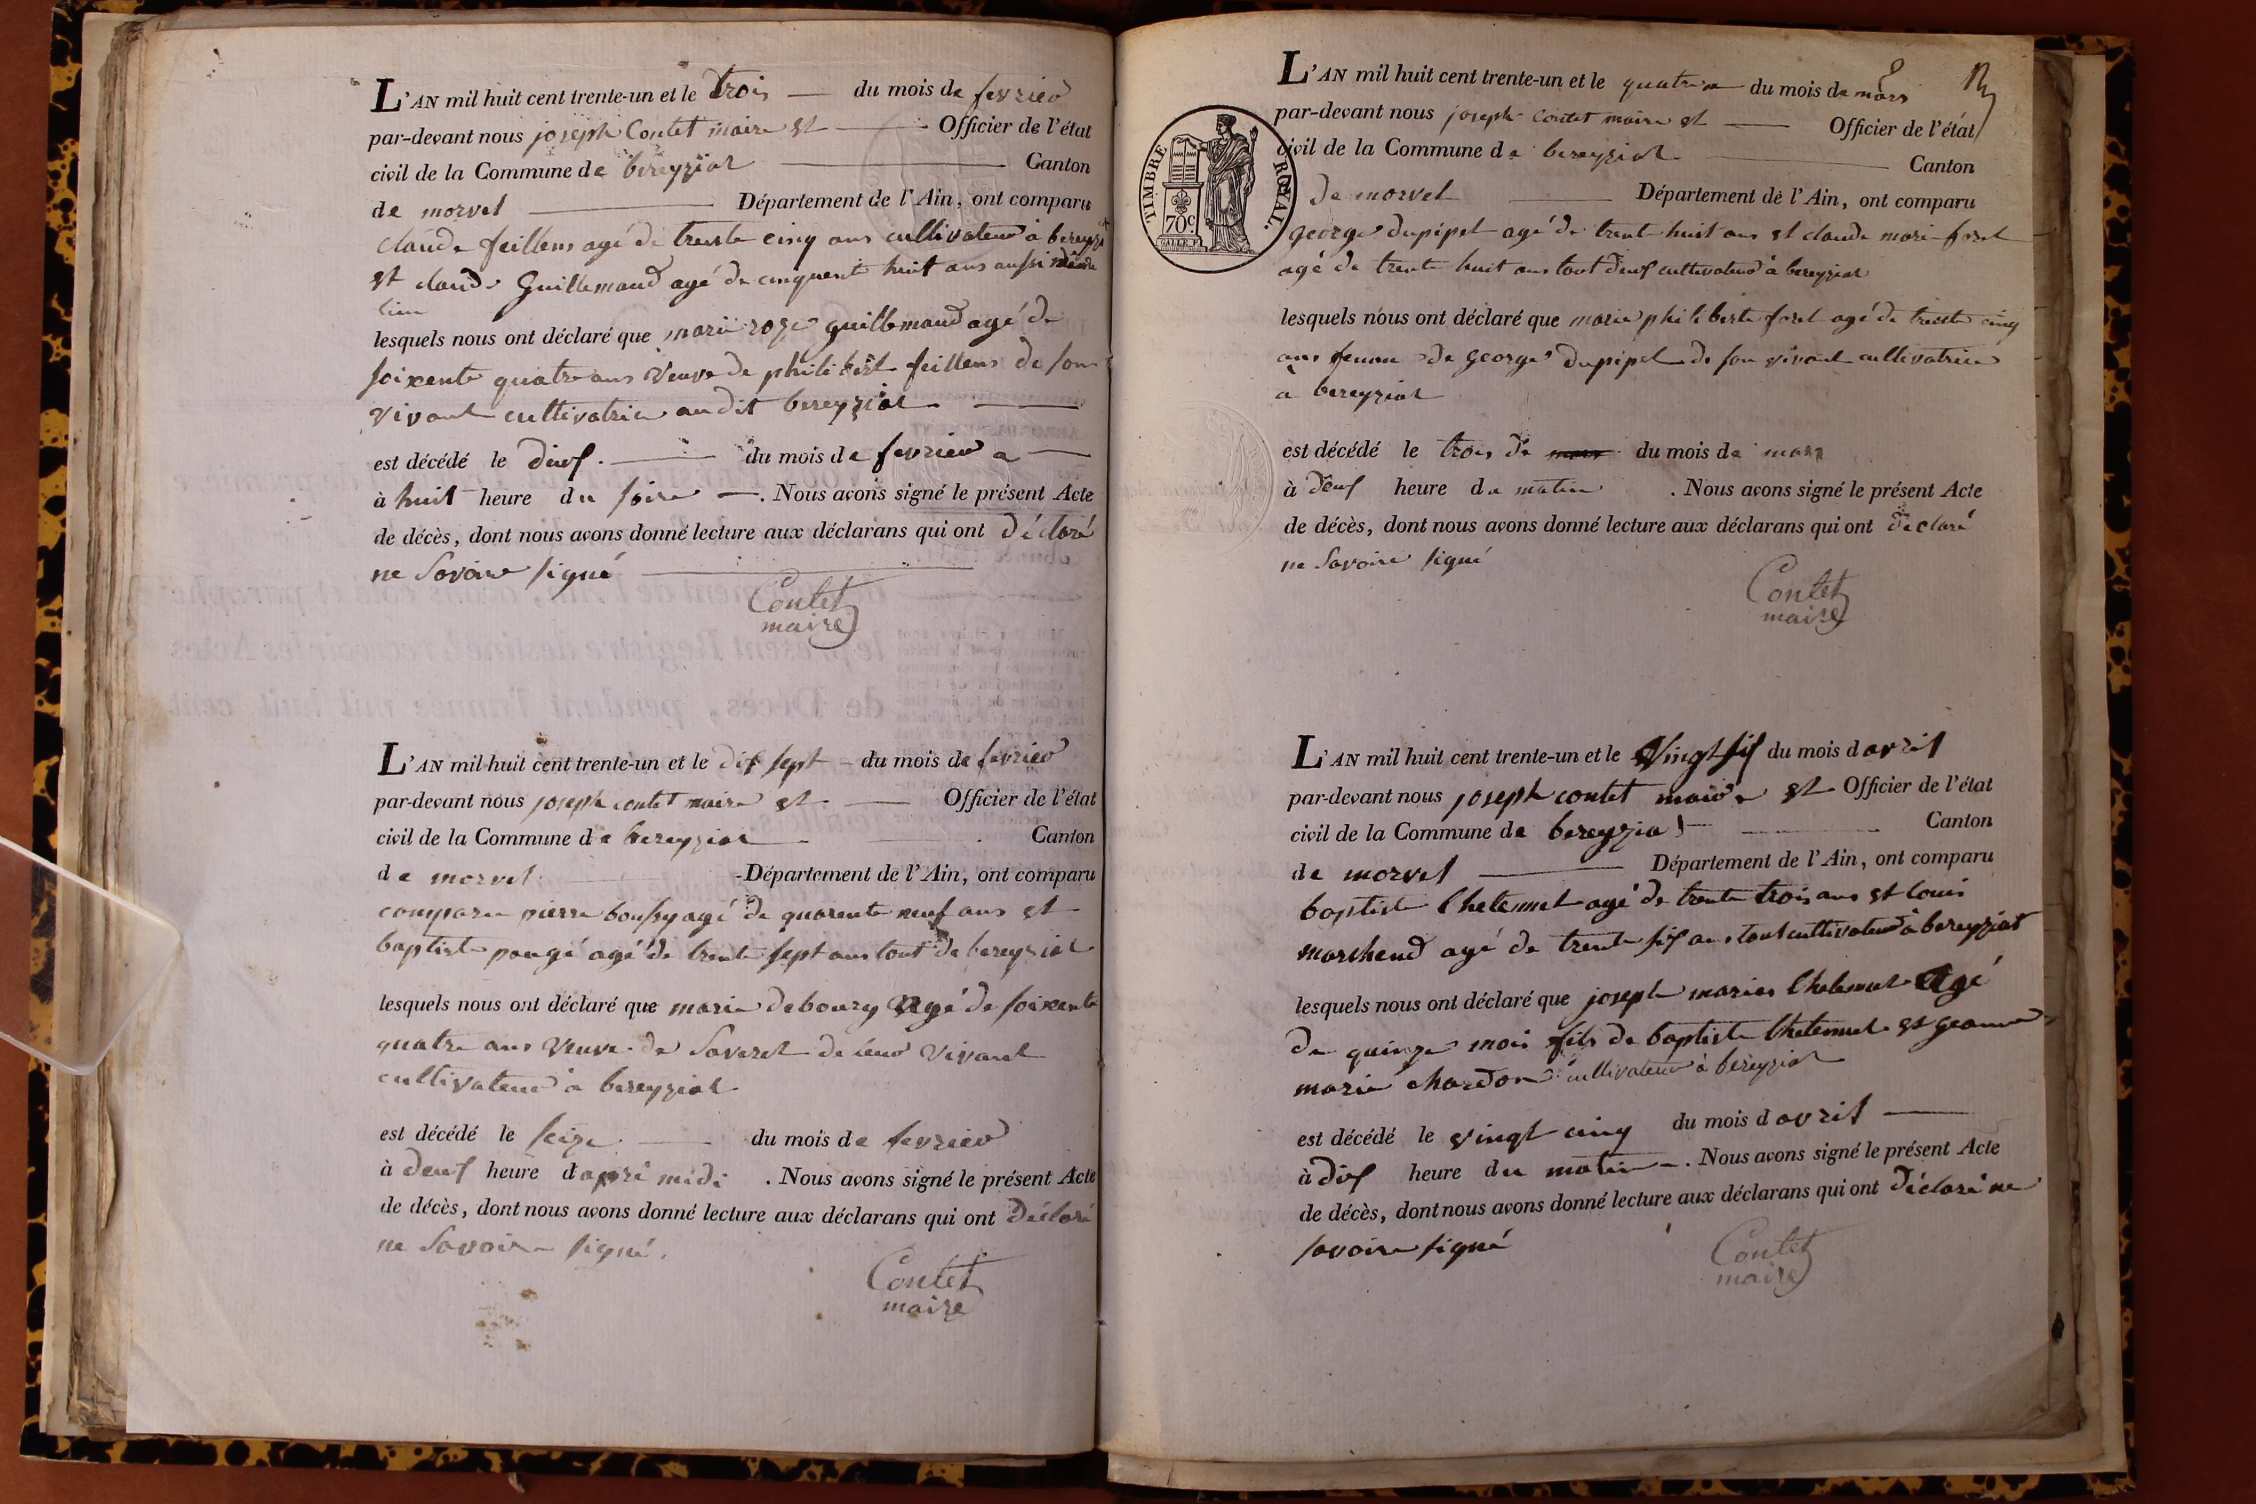 L'AN mil huit cent trente-un et le trois du mois de fevrier
par-devant nous joseph Contet maire et Officier de l'état
civil de la Commune de bereyziat Canton
de morvel Département de l'Ain, ont comparu
claude feillens agé de trente cinq ans cultivateur à bereyziat
et claude Guillemaud agé de cinquente huit ans aussi même
lieu
lesquels nous ont déclaré que marie roze guillemaud agé de
soixente quatre ans veuve de philibert feillens de son
vivant cultivatrice au dit bereyziat
est décédé le deux du mois de fevrier a
à huit heure du soire . Nous avons signé le présent Acte
de décès, dont nous avons donné lecture aux déclarans qui ont déclaré
ne Savoire signé
Contet
maire
L'AN mil huit cent trente-un et le dix sept du mois de fevrier
par-devant nous joseph contet maire et Officier de l'état
civil de la Commune de bereyziat Canton
de morvel Département de l'Ain, ont comparu
comparu pierre boussy agé de quarente neuf ans et
baptiste pougé agé de trente sept ans tout de bereyziat
lesquels nous ont déclaré que marie deboury agé de soixente
quatre ans veuve de Saveret de leur vivant
cultivateur à bereyziat
est décédé le seize du mois de fevrier
à deux heure d'apré midi . Nous avons signé le présent Acte
de décès, dont nous avons donné lecture aux déclarans qui ont Déclaré
ne Savoire signé.
Contet
maire
2
L'AN mil huit cent trente-un et le quatre du mois de mars
par-devant nous joseph Contet maire et Officier de l'état
civil de la Commune de bereyziat Canton
de morvel Département de l'Ain, ont comparu
george dupipet agé de trente huit ans et claude marie foret
agé de trente huit ans tout deux cultivateur à bereyziat
lesquels nous ont déclaré que marie philiberte foret agé de trente cinq
ans femme de george dupipet de son vivant cultivatrice
a bereyziat
est décédé le trois de du mois de mars
à deux heure du matin . Nous avons signé le présent Acte
de décès, dont nous avons donné lecture aux déclarans qui ont déclaré
ne Savoire signé
Contet
maire
TIMBRE ROYAL.
70c.
L'AN mil huit cent trente-un et le vingt six du mois d avril
par-devant nous joseph contet maire et Officier de l'état
civil de la Commune de bereyziat Canton
de morvel Département de l'Ain, ont comparu
baptiste Chetemet agé de trente trois ans et louis
marchend agé de trente six ans tout cultivateur à bereyziat
lesquels nous ont déclaré que joseph maries Chetemet agé
de quinze mois fils de baptiste Chetemet et geanne
marie chardon cultivateur à bereyziat
est décédé le vingt cinq du mois d avril
à dix heure du matin . Nous avons signé le présent Acte
de décès, dont nous avons donné lecture aux déclarans qui ont Déclaré ne
savoire signé
Contet
maire